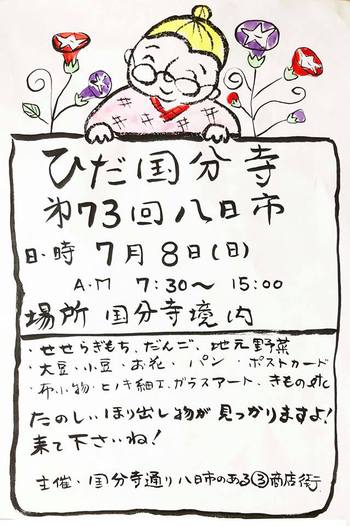 ひだ国分寺
第73回八日市
日時 7月8日(日)
A.M 7:30〜15:00
場所 国分寺境内
・せせらぎもち、だんご、地元野菜
・大豆・小豆・お花・パン・ポストカード
・布小物・ヒノキ細工、ガラスアート、きものetc
たのしいほり出し物が見っかりますよ!
来て下さいね!
主催・国分寺通り八日市のある③商店街